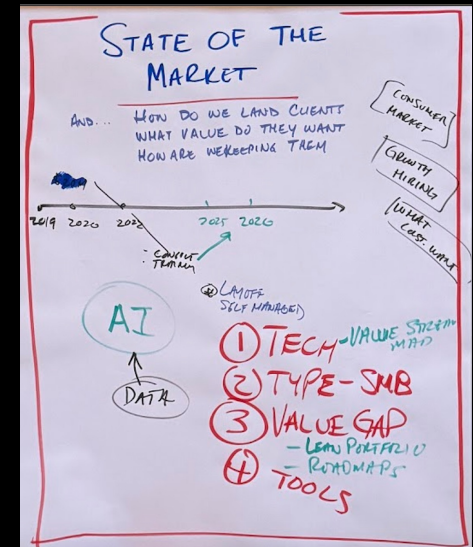 STATE OF THE
MARKET
AND... HOW DO WE LAND CLIENTS
WHAT VALUE DO THEY WANT
HOW ARE WE KEEPING THEM
[CONSUMER
MARKET]
[GROWTH
HIRING]
[WHAT
CUST. WANT]
2019 2020 2022 2025 2026
: CONSULT
TRAINING
LAYOFF
SELF MANAGED
AI
DATA
1 TECH - VALUE STREAM
MAP
2 TYPE - SMB
3 VALUE GAP
- LEAN PORTFOLIO
- ROADMAPS
4 TOOLS